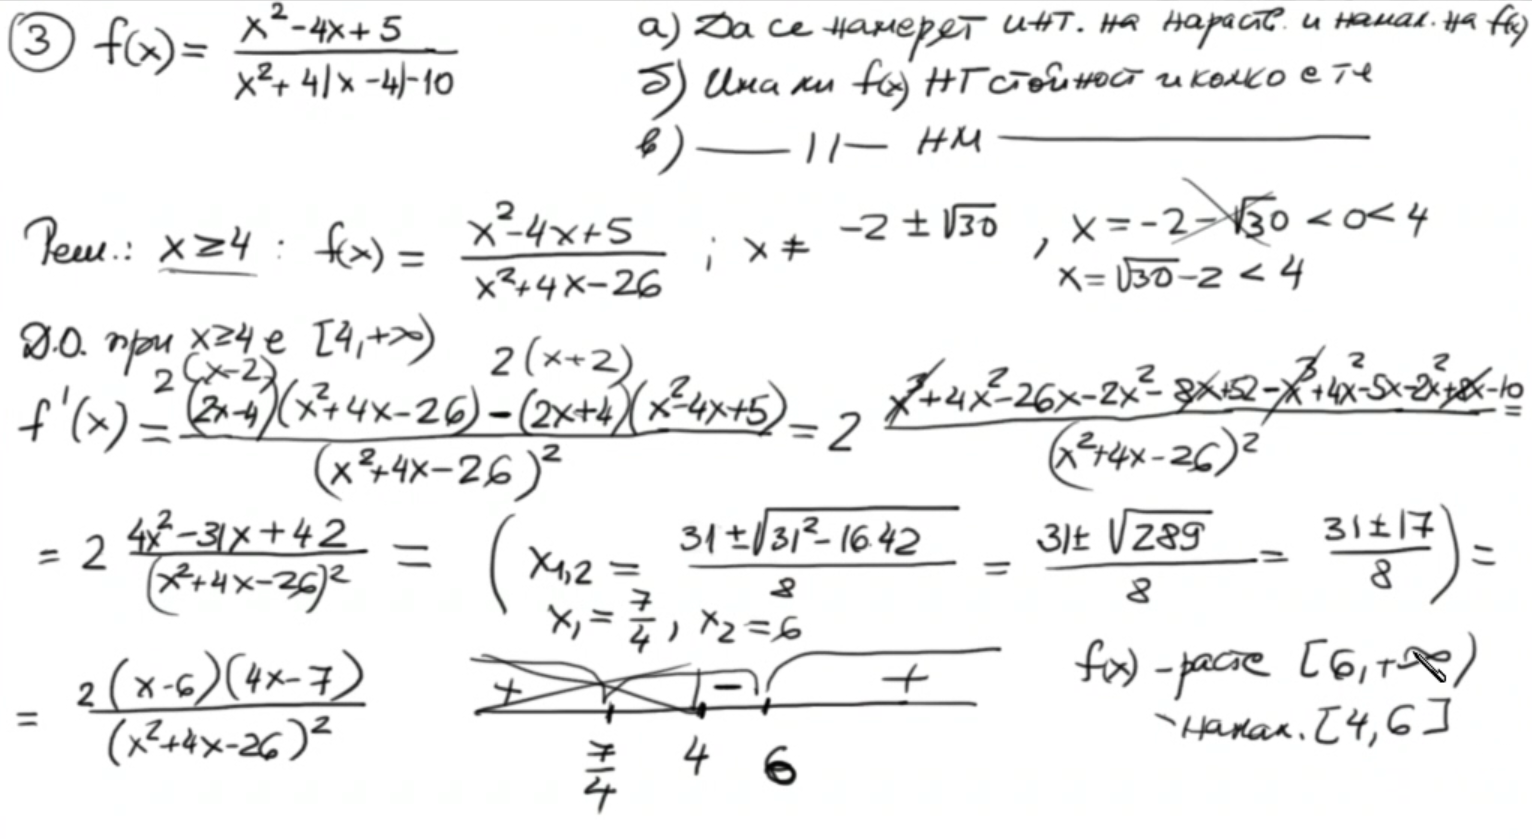 ③ f(x) = (x² - 4x + 5)/(x² + 4|x - 4| - 10) а) Да се намерят инт. на нараств. и намал. на f(x)
б) Има ли f(x) НГ стойност и колко е тя
в) —— 11 — НМ ——————
Реш.: x ≥ 4 : f(x) = (x² - 4x + 5)/(x² + 4x - 26) ; x ≠ -2 ± √30 , x = -2 - √30 < 0 < 4
x = √30 - 2 < 4
Д.О. при x ≥ 4 е [4, +∞)
2(x-2) 2(x+2)
f'(x) = ((2x-4)(x²+4x-26) - (2x+4)(x²-4x+5))/(x²+4x-26)² = 2 (x³+4x²-26x-2x²-8x+52-x³+4x²-5x-2x²+8x-10)/(x²+4x-26)² =
= 2 (4x²-31x+42)/(x²+4x-26)² = ( x₁,₂ = (31 ± √(31²-16.42))/8 = (31 ± √289)/8 = (31 ± 17)/8 ) =
x₁ = 7/4 , x₂ = 6
= 2(x-6)(4x-7)/(x²+4x-26)² + - + f(x) - расте [6, +∞)
7/4 4 6 - намал. [4, 6]